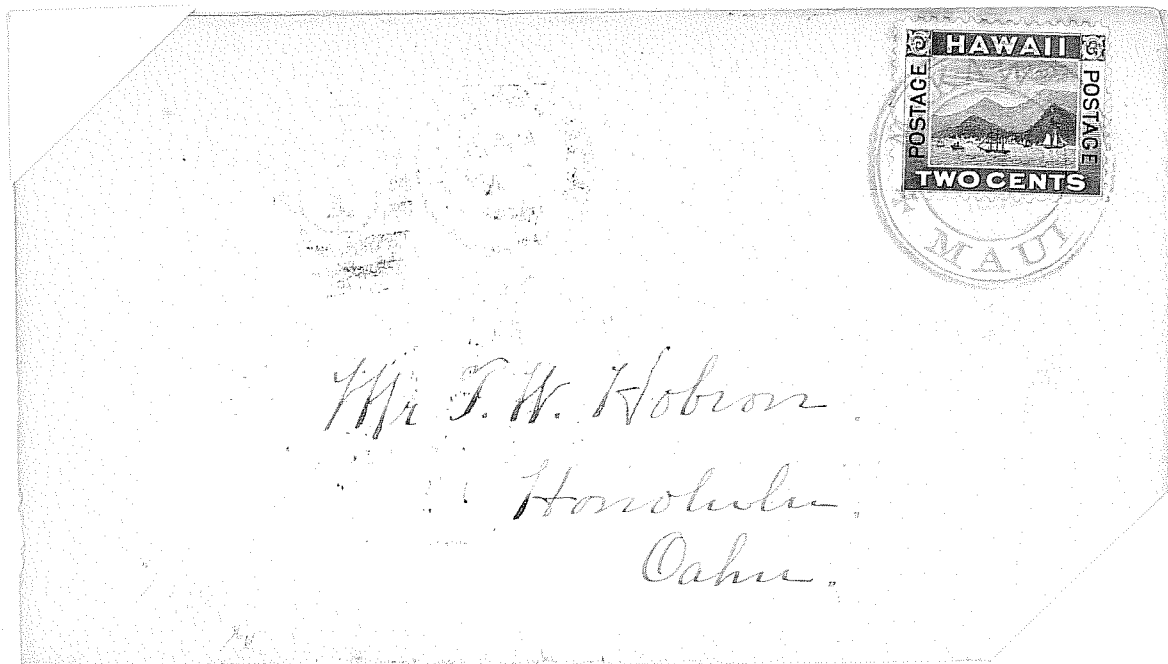 HAWAII
POSTAGE
POSTAGE
TWO CENTS
MAUI
Mr T. W. Hobron.
Honolulu.
Oahu.